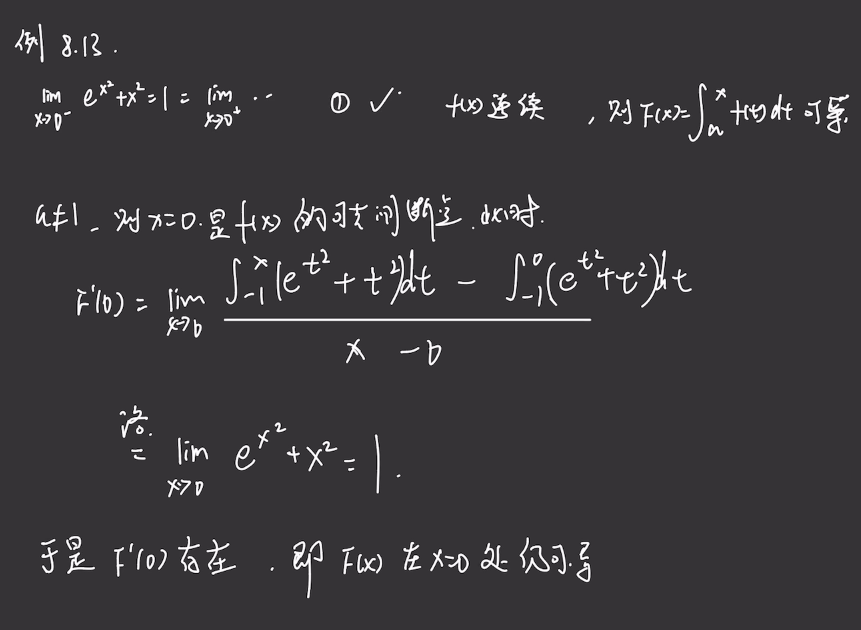 例 8.13.
lim x→0⁻ e^{x²}+x²=1=lim x→0⁺ ... ① ✓ f(x)连续，则F(x)=∫_a^x f(t)dt可导
a≠1，则x=0是f(x)的可去间断点.此时.
F'(0)=lim x→0 (∫_{-1}^x (e^{t²}+t²)dt − ∫_{-1}^0 (e^{t²}+t²)dt)/(x−0)
洛.
= lim x→0 e^{x²}+x²=1.
于是F'(0)存在.即F(x)在x=0处仍可导